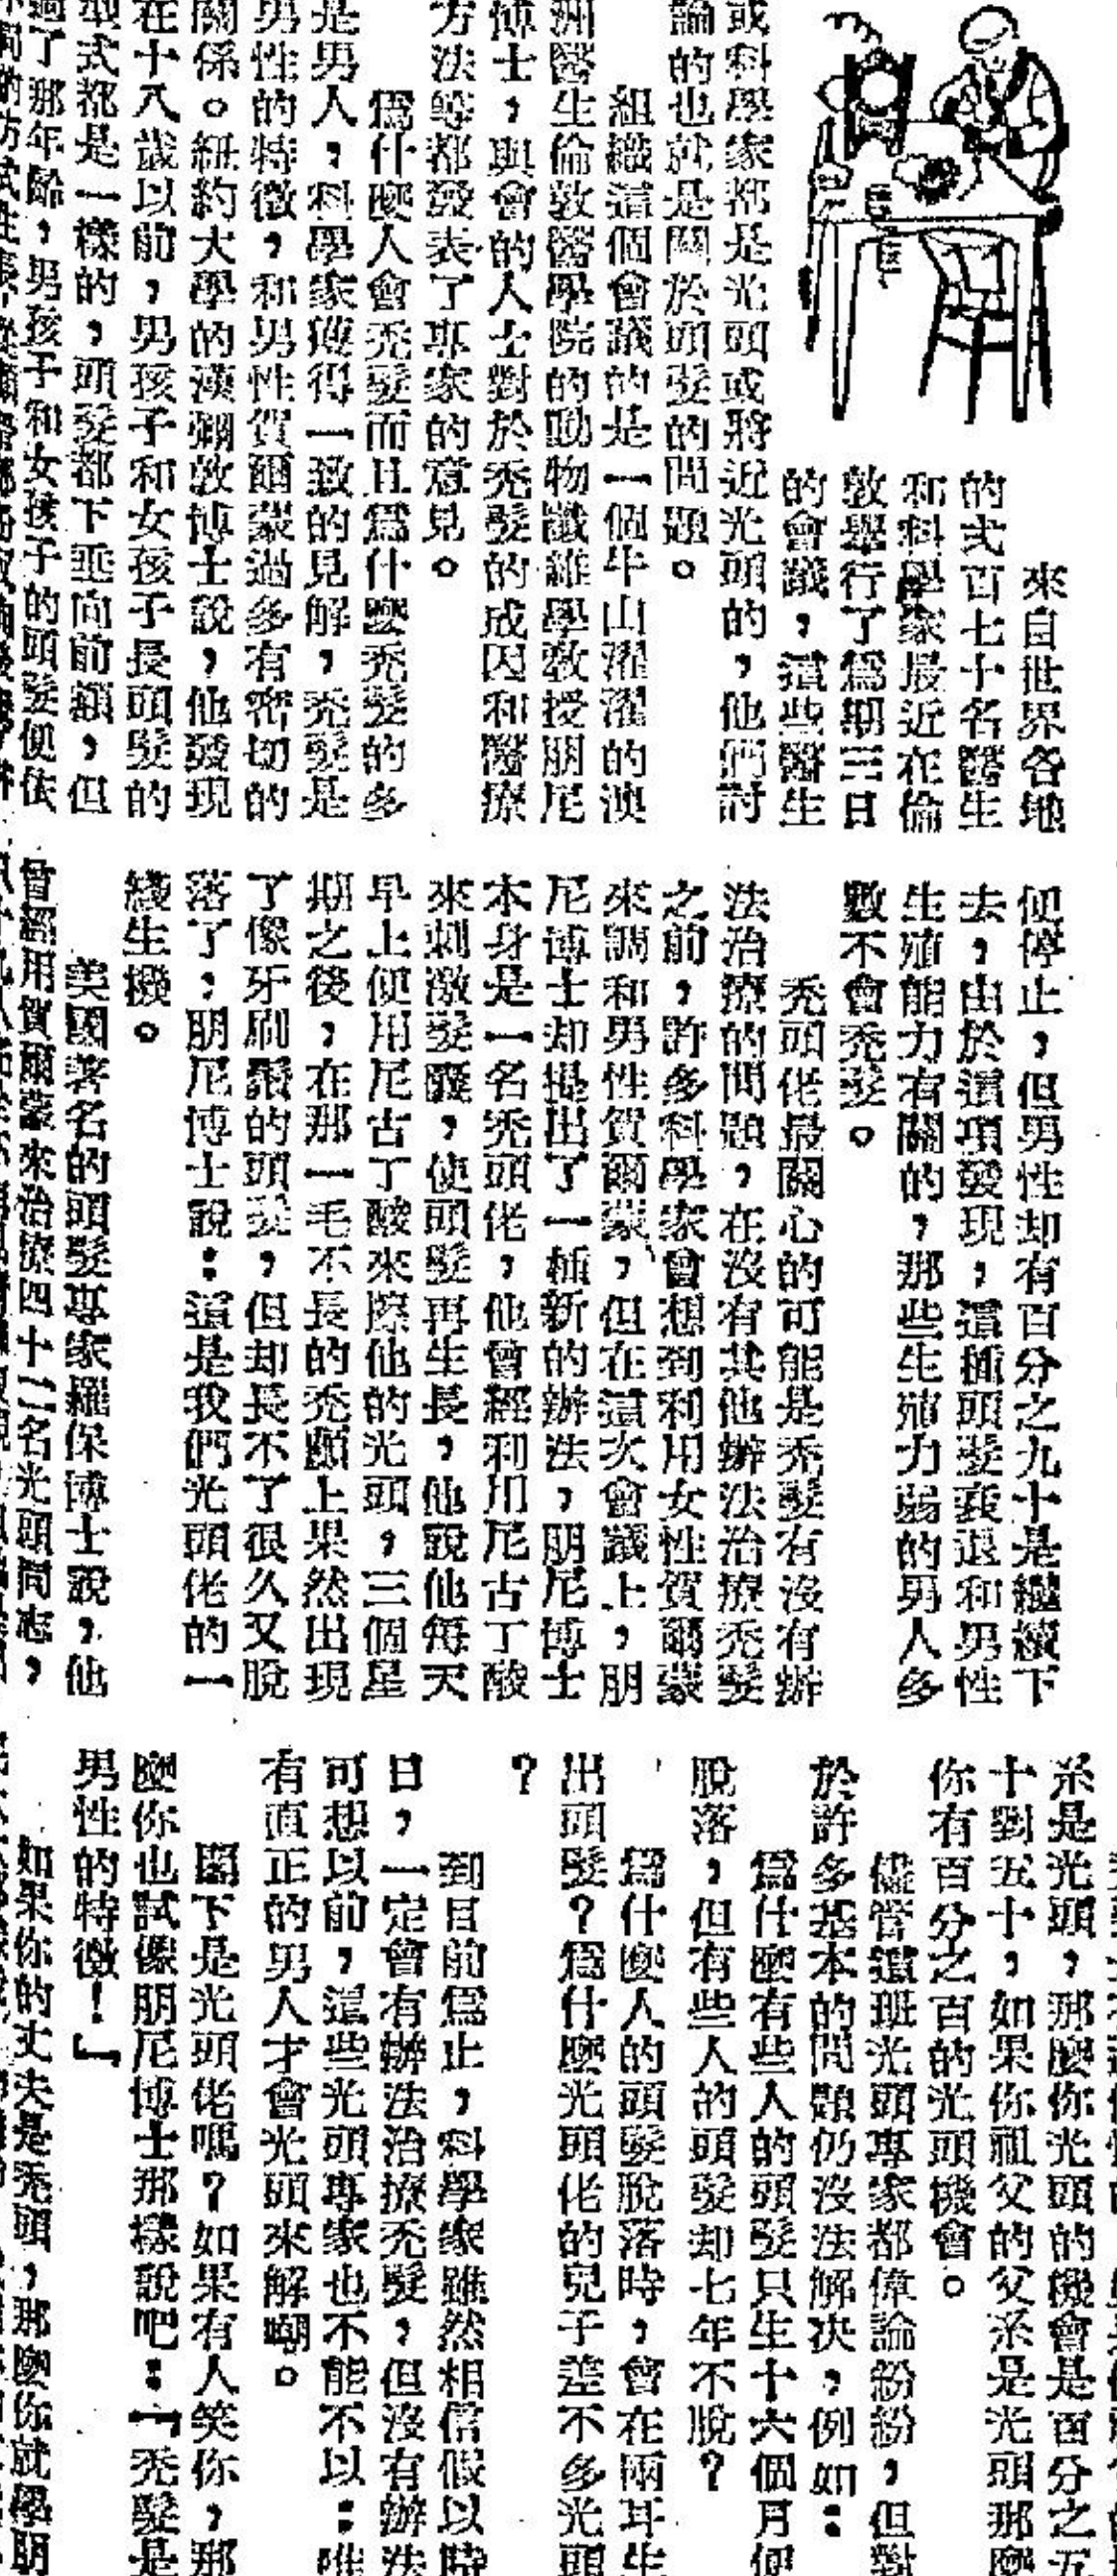 來自世界各地
的式百七十名醫生
和科學家最近在倫
敦舉行了爲期三日
的會議，這些醫生
或科學家都是光頭或將近光頭的，他們討
論的也就是關於頭髮的問題。
組織這個會議的是一個牛山濯濯的澳
洲醫生倫敦醫學院的動物纖維學教授朋尼
博士，與會的人士對於禿髮的成因和醫療
方法等都發表了專家的意見。
爲什麼人會禿髮而且爲什麼禿髮的多
是男人，科學家獲得一致的見解，禿髮是
男性的特徵，和男性賀爾蒙過多有密切的
關係。紐約大學的漢彌敦博士說，他發現
在十八歲以前，男孩子和女孩子長頭髮的
型式都是一樣的，頭髮都下垂向前額，但
過了那年齡，男孩子和女孩子的頭髮便依
便停止，但男性却有百分之九十是繼續下
去，由於這項發現，這種頭髮衰退和男性
生殖能力有關的，那些生殖力弱的男人多
數不會禿髮。
禿頭佬最關心的可能是禿髮有沒有辦
法治療的問題，在沒有其他辦法治療禿髮
之前，許多科學家會想到利用女性賀爾蒙
來調和男性賀爾蒙，但在這次會議上，朋
尼博士却提出了一種新的辦法，朋尼博士
本身是一名禿頭佬，他曾經利用尼古丁酸
來刺激髮醒，使頭髮再生長，他說他每天
早上便用尼古丁酸來擦他的光頭，三個星
期之後，在那一毛不長的禿顱上果然出現
了像牙刷鬚的頭髮，但却長不了很久又脫
落了，朋尼博士說：這是我們光頭佬的一
綫生機。
美國著名的頭髮專家羅保博士說，他
曾經用賀爾蒙來治療四十二名光頭同志，
系是光頭，那麼你光頭的機會是百分之五
十到五十，如果你祖父的父系是光頭那麼
你有百分之百的光頭機會。
儘管這班光頭專家都偉論紛紛，但對
於許多基本的問題仍沒法解决，例如：
爲什麼有些人的頭髮只生十六個月便
脫落，但有些人的頭髮却七年不脫？
爲什麼人的頭髮脫落時，會在兩耳生
出頭髮？爲什麼光頭佬的兒子差不多光頭
？
到目前爲止，科學家雖然相信假以時
日，一定會有辦法治療禿髮，但沒有辦法
可想以前，這些光頭專家也不能不以：唯
有直正的男人才會光頭來解嘲。
閣下是光頭佬嗎？如果有人笑你，那
麼你也試像朋尼博士那樣說吧：「禿髮是
男性的特徵！」
如果你的丈夫是禿頭，那麼你就學朋